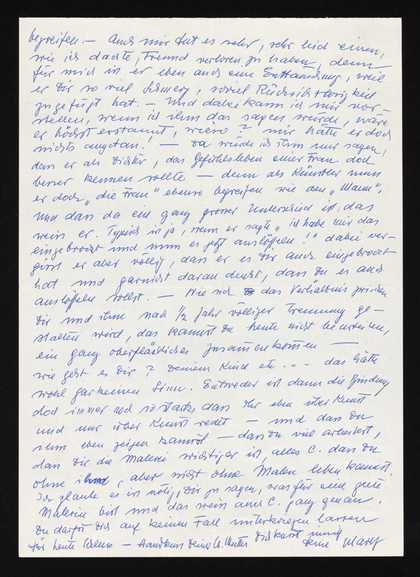 begreifen. – Auch mir tut es sehr, sehr leid einen,
wie ich dachte, Freund verloren zu haben, denn
für mich ist er eben auch eine Enttäuschung, weil
er Dir so viel Schmerz, soviel Rücksichtslosigkeit
zugefügt hat. – Und dabei kann ich mir vor-
stellen, wenn ich ihm das sagen würde, wäre
er höchst erstaunt, wieso? mir hätte er doch
nichts angetan! – Da würde ich ihm nur sagen,
dass er als Dichter, das Gefühlsleben einer Frau doch
besser kennen sollte – denn als Künstler muss
er doch „die Frau" ebenso begreifen wie den „Mann",
und dass da ein ganz grosser Unterschied ist, das
weiss er. Typisch ist ja, wenn er sagt „ich habe mir das
eingebrockt und muss es jetzt auslöffeln!" dabei ver-
gisst er aber völlig, dass er es Dir auch eingebrockt
hat und garnicht daran denkt, dass Du es auch
auslöffeln sollst. – Wie sich das Verhältnis zwischen
Dir und ihm nach 1/2 Jahr völliger Trennung ge-
stalten wird, das kannst Du heute nicht beurteilen,
ein ganz oberflächliches Zusammenkommen –
wie geht es Dir? Deinem Kind etc. ... das hätte
wohl gar keinen Sinn. Entweder ist dann die Bindung
doch immer noch so stark, dass Ihr eben über Kunst
und nur über Kunst redet – und dass Du
ihm eben zeigen kannst – dass Du viel arbeitest,
dass Dir die Malerei wichtiger ist, als C. dass Du
ohne ihn, aber nicht ohne Malen leben kannst.
Ich glaube es ist nötig, Dir zu sagen, was für eine gute
Malerin bist und das weiss auch C. ganz genau.
Du darfst Dich auf keinen Fall unterkriegen lassen
für heute Schluss – Deine